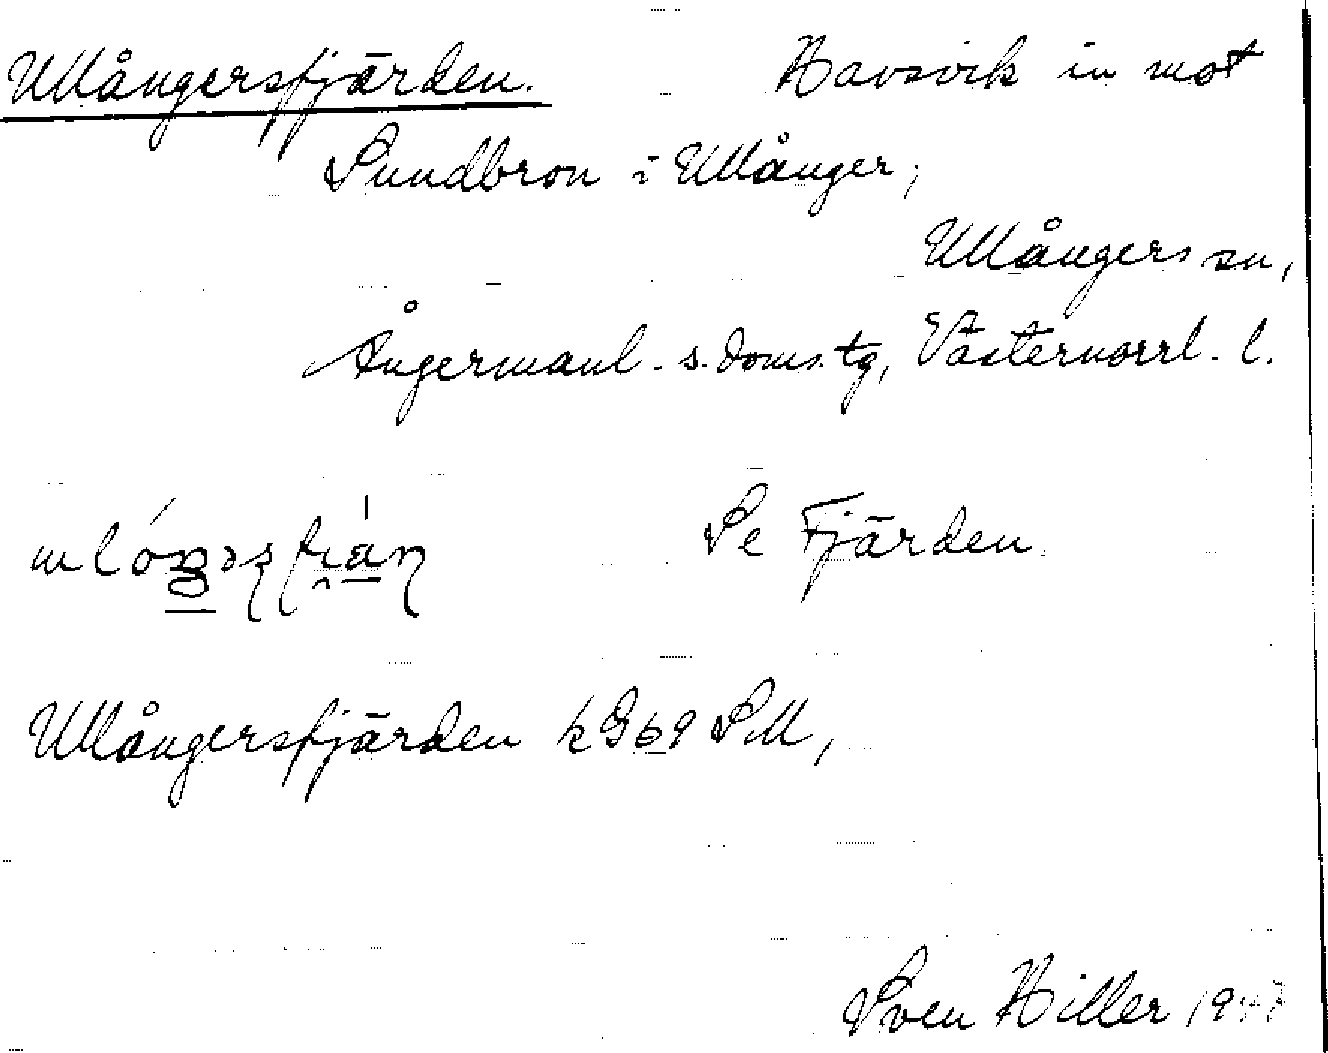 Ullångersfjärden. Havsvik in mot
Sundbron i Ullånger,
Ullångers sn,
Ångermanl. s. doms. tg, Västernorrl. l.
Se Fjärden
Ullångersfjärden kG69 SM,
Sven Hiller